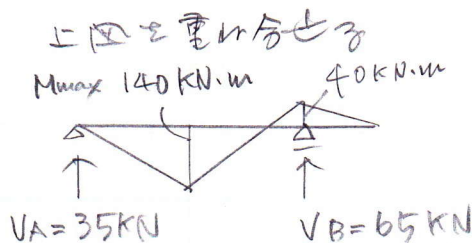 上図を重ね合せる
Mmax 140KN·m
40KN·m
VA=35KN
VB=65KN